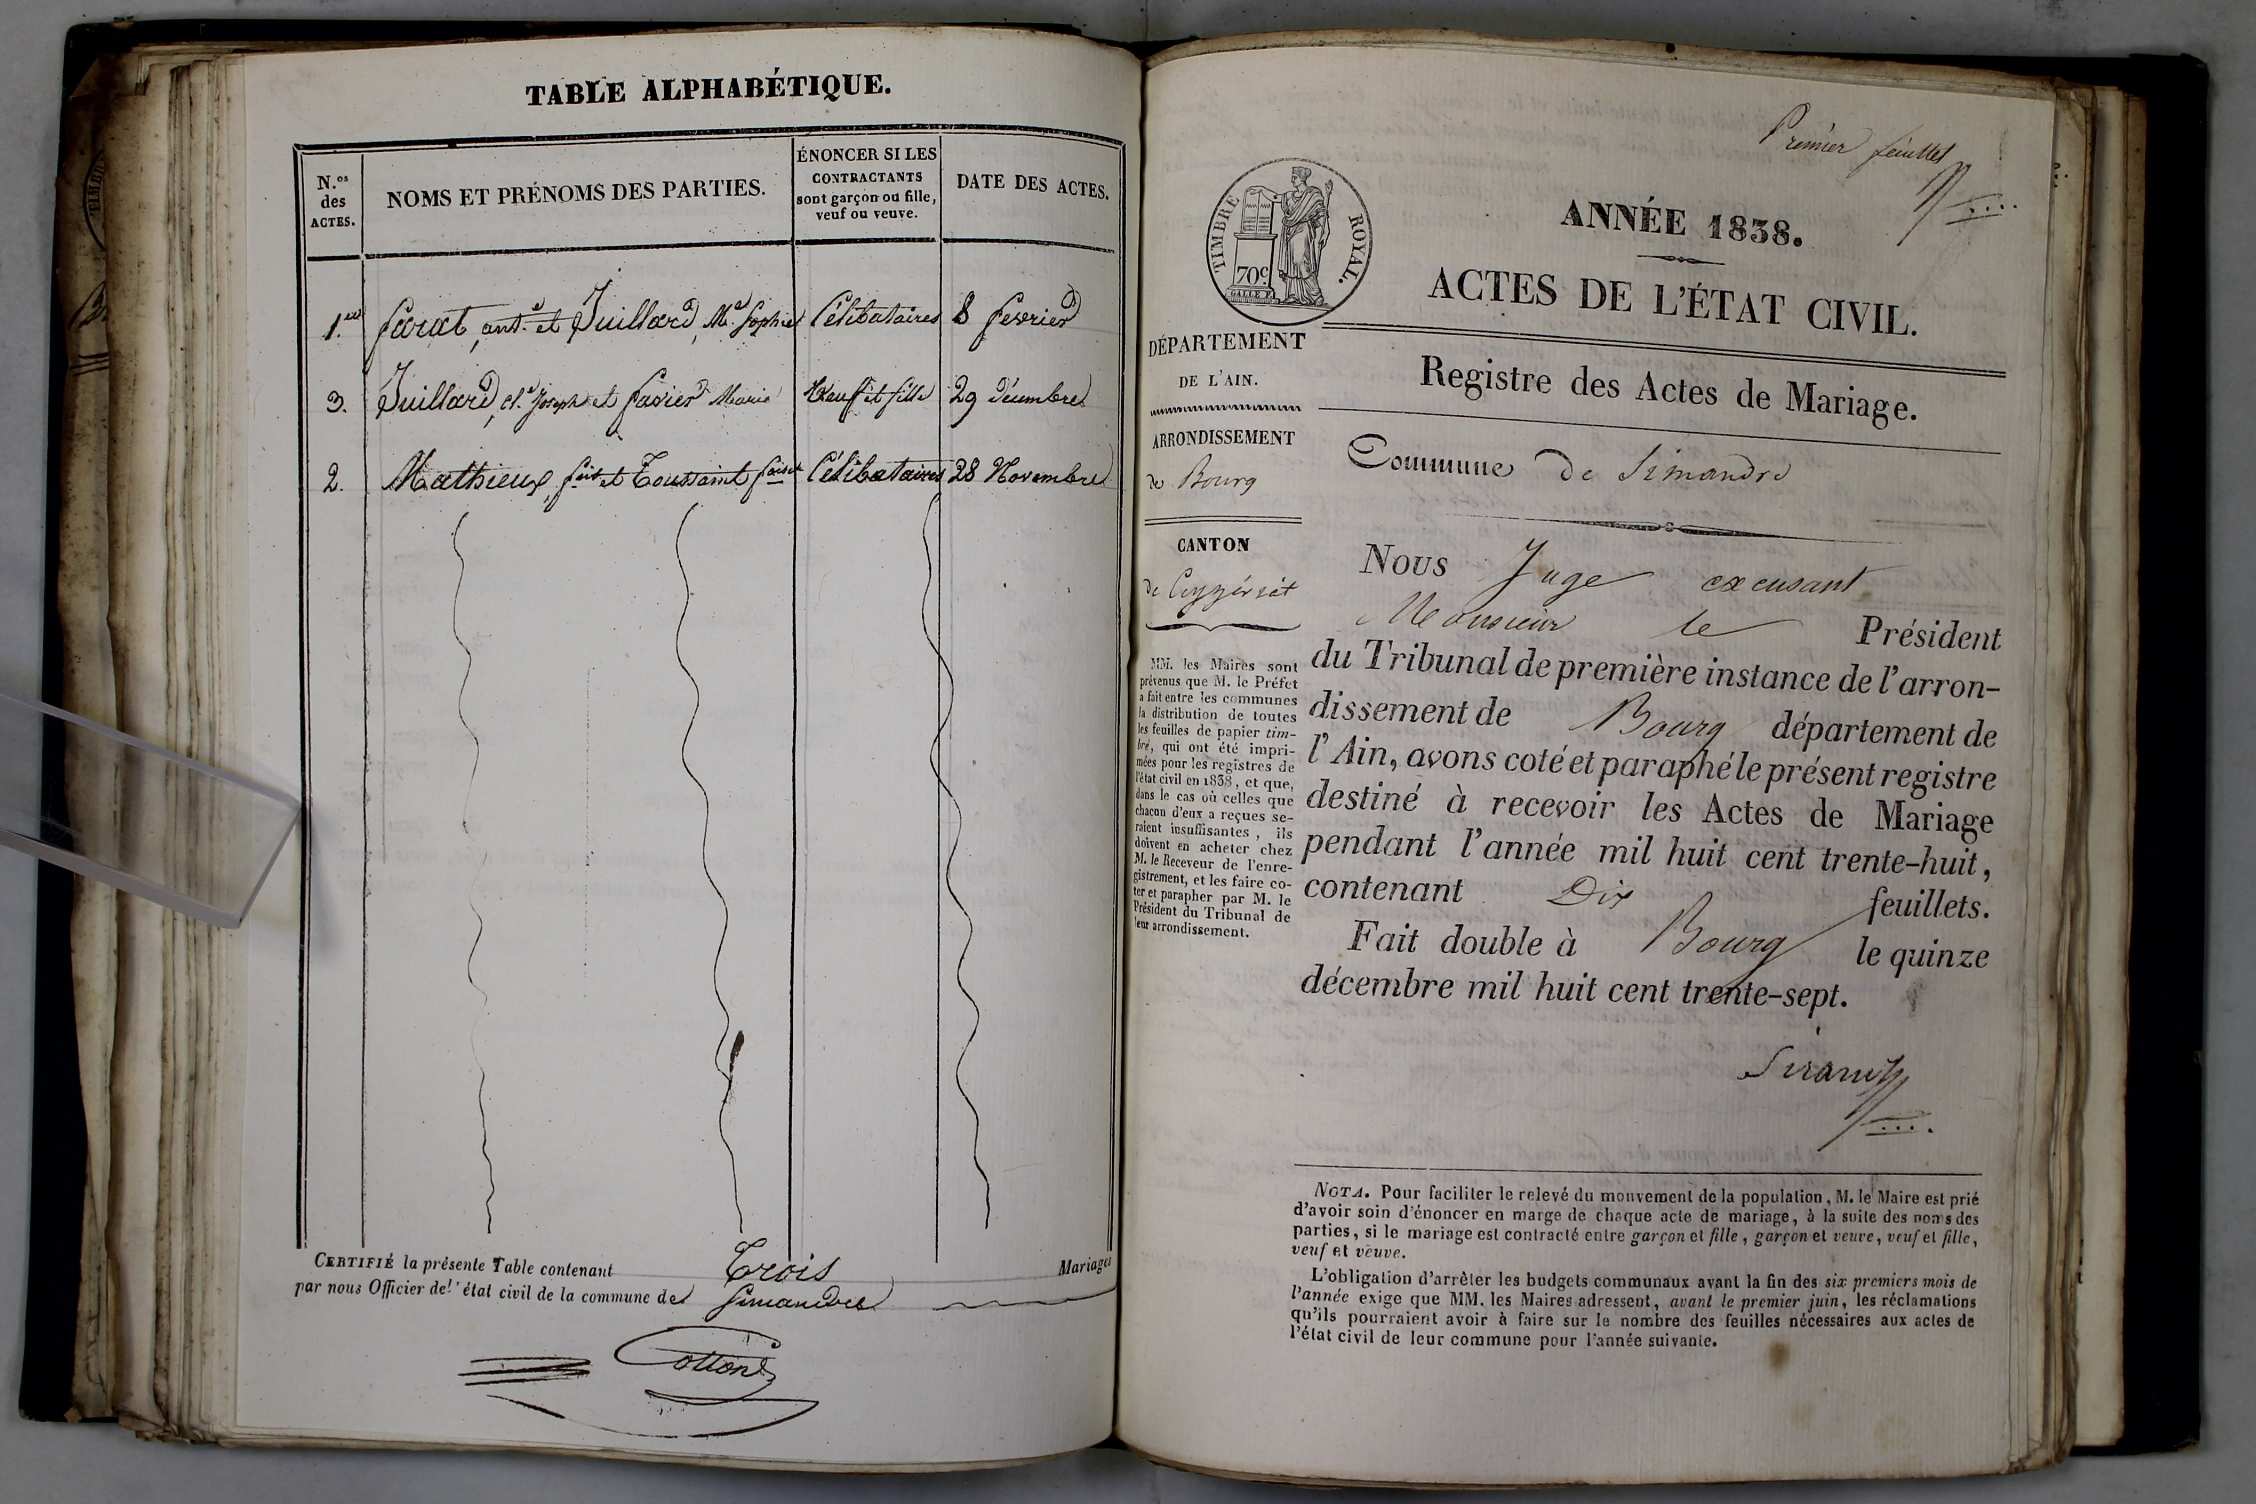 TABLE ALPHABÉTIQUE.
N.os
des
ACTES.
NOMS ET PRÉNOMS DES PARTIES.
ÉNONCER SI LES
CONTRACTANTS
sont garçon ou fille,
veuf ou veuve.
DATE DES ACTES.
1.er ant.e et Juillard, M.e Sophie Célibataires 8 fevrier
3. Juillard, cl.e Joseph et favier Marie Veuf et fille 29 Décembre
2. Mathieux et Toussaint Célibataires 28 Novembre
CERTIFIÉ la présente Table contenant Trois Mariages
par nous Officier de l'état civil de la commune de Simandre
Premier feuillet
TIMBRE ROYAL.
70c
ANNÉE 1838.
ACTES DE L'ÉTAT CIVIL.
Registre des Actes de Mariage.
Commune de Simandre
DÉPARTEMENT
DE L'AIN.
ARRONDISSEMENT
de Bourg
CANTON
de Ceyzériat
MM. les Maires sont
prévenus que M. le Préfet
a fait entre les communes
la distribution de toutes
les feuilles de papier tim-
bré, qui ont été impri-
mées pour les registres de
l'état civil en 1838, et que,
dans le cas où celles que
chacun d'eux a reçues se-
raient insuffisantes, ils
doivent en acheter chez
M. le Receveur de l'enre-
gistrement, et les faire co-
ter et parapher par M. le
Président du Tribunal de
leur arrondissement.
Nous Juge excusant
Monsieur le Président
du Tribunal de première instance de l'arron-
dissement de Bourg département de
l'Ain, avons coté et paraphé le présent registre
destiné à recevoir les Actes de Mariage
pendant l'année mil huit cent trente-huit,
contenant Dix feuillets.
Fait double à Bourg le quinze
décembre mil huit cent trente-sept.
NOTA. Pour faciliter le relevé du mouvement de la population, M. le Maire est prié
d'avoir soin d'énoncer en marge de chaque acte de mariage, à la suite des noms des
parties, si le mariage est contracté entre garçon et fille, garçon et veuve, veuf et fille,
veuf et veuve.
L'obligation d'arrêter les budgets communaux avant la fin des six premiers mois de
l'année exige que MM. les Maires adressent, avant le premier juin, les réclamations
qu'ils pourraient avoir à faire sur le nombre des feuilles nécessaires aux actes de
l'état civil de leur commune pour l'année suivante.